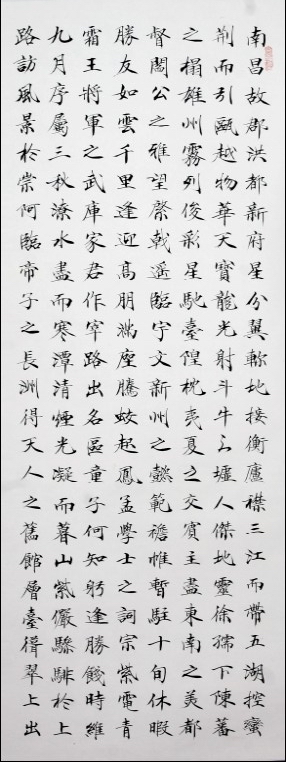 南昌故郡洪都新府星分翼軫地接衡廬襟三江而帶五湖控蠻
荆而引甌越物華天寶龍光射斗牛之墟人傑地靈徐孺下陳蕃
之榻雄州霧列俊彩星馳臺隍枕夷夏之交賓主盡東南之美都
督閻公之雅望棨戟遥臨宇文新州之懿範襜帷暫駐十旬休暇
勝友如雲千里逢迎高朋滿座騰蛟起鳳孟學士之詞宗紫電青
霜王將軍之武庫家君作宰路出名區童子何知躬逢勝餞時維
九月序屬三秋潦水盡而寒潭清煙光凝而暮山紫儼驂騑於上
路訪風景於崇阿臨帝子之長洲得天人之舊館層臺聳翠上出